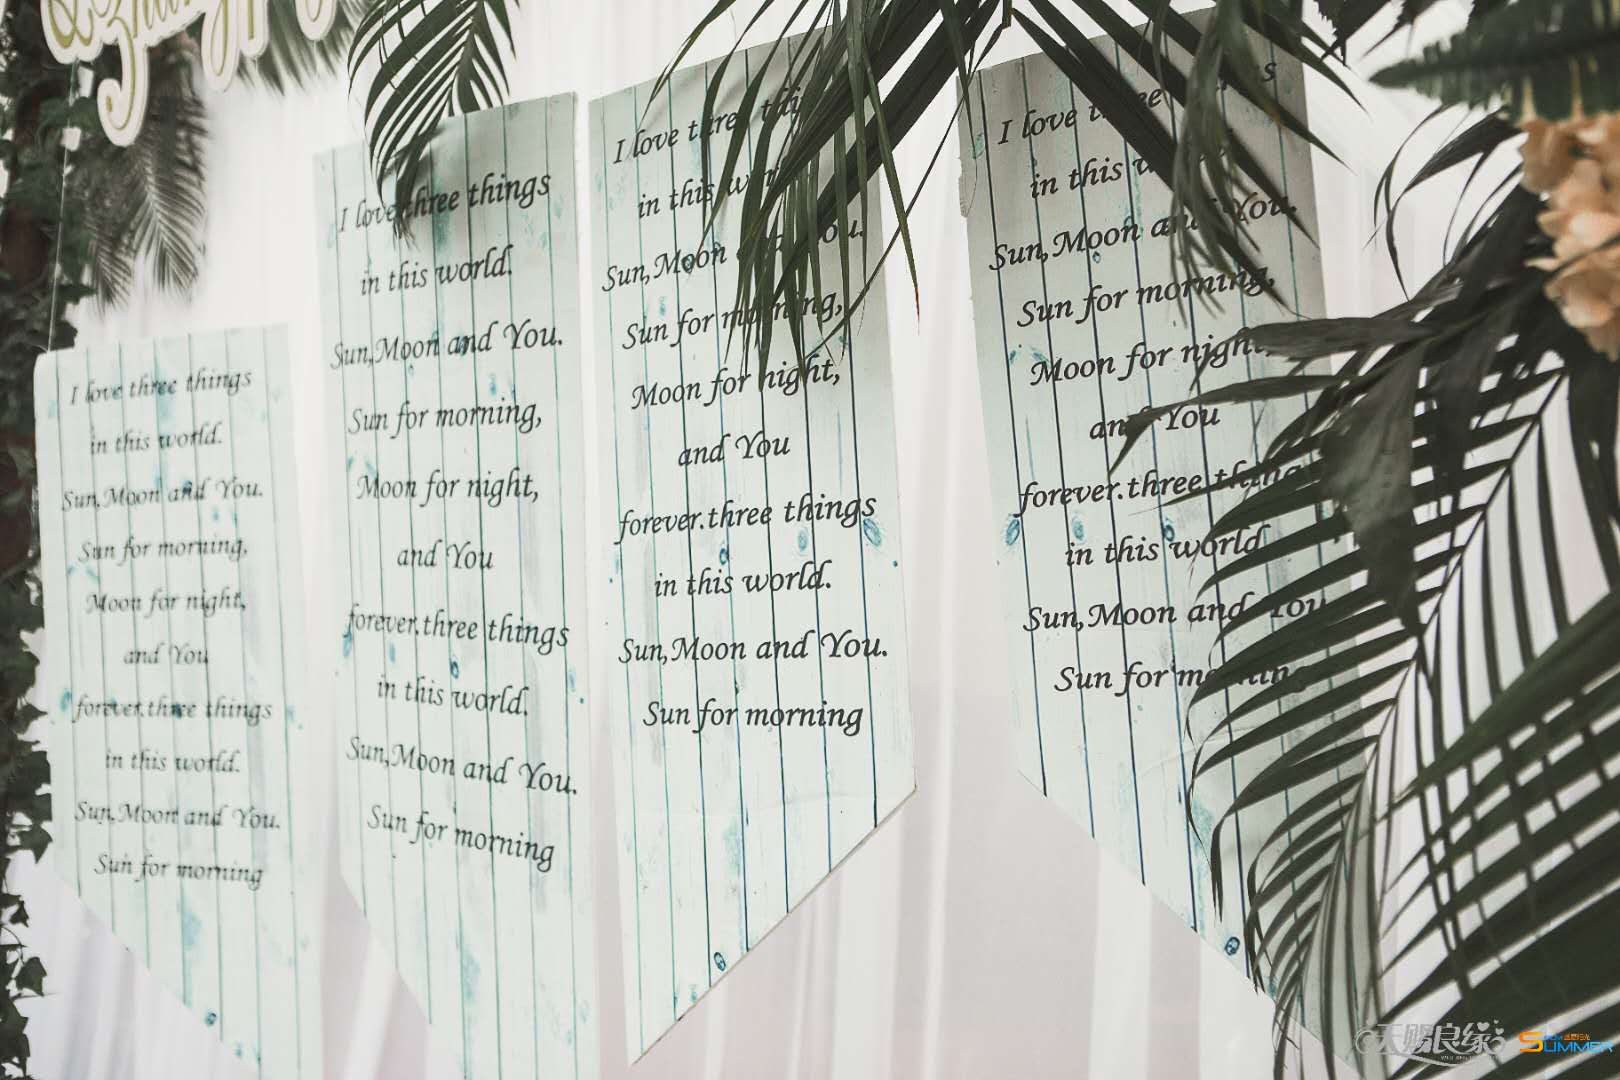 I love three things
in this world.
Sun,Moon and You.
Sun for morning,
Moon for night,
and You
forever.three things
in this world.
Sun,Moon and You.
Sun for morning
I love three things
in this world.
Sun,Moon and You.
Sun for morning,
Moon for night,
and You
forever.three things
in this world.
Sun,Moon and You.
Sun for morning
I love three
in this
Sun,Moon You.
Sun for morning,
Moon for night,
and You
forever.three things
in this world.
Sun,Moon and You.
Sun for morning
I love
in this
Sun,Moon and You.
Sun for morning,
Moon for night,
and You
forever.three things
in this world
Sun,Moon and You
Sun for morning
天赐良缘
SUMMER